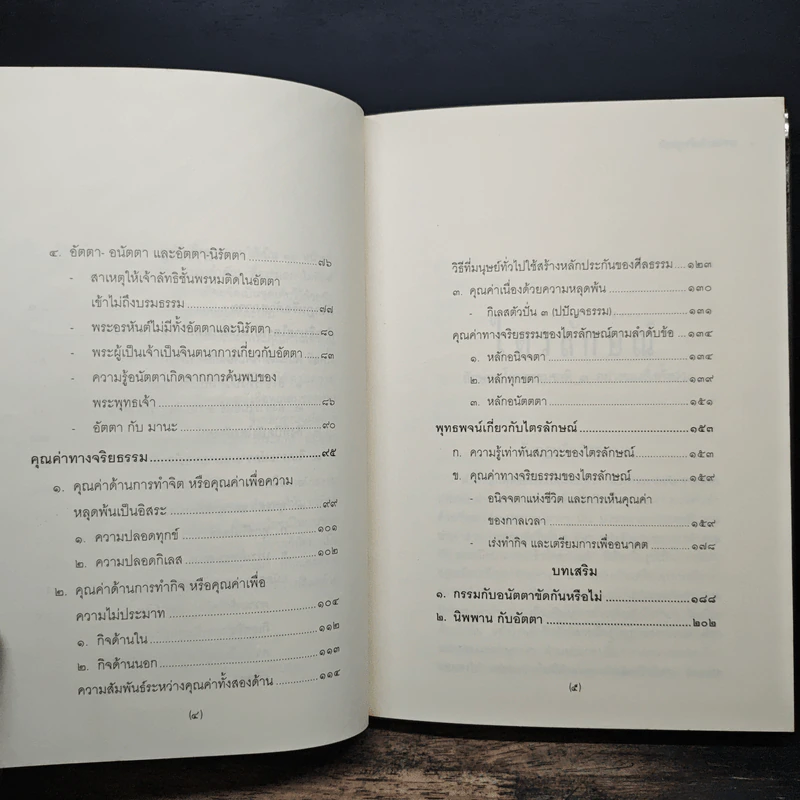 ๔. อัตตา- อนัตตา และอัตตา-นิรัตตา ........................ ๗๖
- สาเหตุให้เจ้าลัทธิชั้นพรหมติดในอัตตา
เข้าไม่ถึงบรมธรรม ........................ ๗๗
- พระอรหันต์ไม่มีทั้งอัตตาและนิรัตตา ........................ ๘๐
- พระผู้เป็นเจ้าเป็นจินตนาการเกี่ยวกับอัตตา ........................ ๘๓
- ความรู้อนัตตาเกิดจากการค้นพบของ
พระพุทธเจ้า ........................ ๘๖
- อัตตา กับ มานะ ........................ ๙๐
คุณค่าทางจริยธรรม ........................ ๙๕
๑. คุณค่าด้านการทำจิต หรือคุณค่าเพื่อความ
หลุดพ้นเป็นอิสระ ........................ ๙๙
๑. ความปลอดทุกข์ ........................ ๑๐๑
๒. ความปลอดกิเลส ........................ ๑๐๒
๒. คุณค่าด้านการทำกิจ หรือคุณค่าเพื่อ
ความไม่ประมาท ........................ ๑๐๔
๑. กิจด้านใน ........................ ๑๑๒
๒. กิจด้านนอก ........................ ๑๑๓
ความสัมพันธ์ระหว่างคุณค่าทั้งสองด้าน ........................ ๑๑๔
(๔)
วิธีที่มนุษย์ทั่วไปใช้สร้างหลักประกันของศีลธรรม .... ๑๒๓
๓. คุณค่าเนื่องด้วยความหลุดพ้น ........................ ๑๓๐
- กิเลสตัวปั่น ๓ (ปปัญจธรรม) ........................ ๑๓๑
คุณค่าทางจริยธรรมของไตรลักษณ์ตามลำดับข้อ .... ๑๓๔
๑. หลักอนิจจตา ........................ ๑๓๔
๒. หลักทุกขตา ........................ ๑๓๙
๓. หลักอนัตตตา ........................ ๑๕๑
พุทธพจน์เกี่ยวกับไตรลักษณ์ ........................ ๑๕๓
ก. ความรู้เท่าทันสภาวะของไตรลักษณ์ ........................ ๑๕๓
ข. คุณค่าทางจริยธรรมของไตรลักษณ์ ........................ ๑๕๙
- อนิจจตาแห่งชีวิต และการเห็นคุณค่า
ของกาลเวลา ........................ ๑๕๙
- เร่งทำกิจ และเตรียมการเพื่ออนาคต ........................ ๑๗๘
บทเสริม
๑. กรรมกับอนัตตาขัดกันหรือไม่ ........................ ๑๘๘
๒. นิพพาน กับอัตตา ........................ ๒๐๒
(๕)